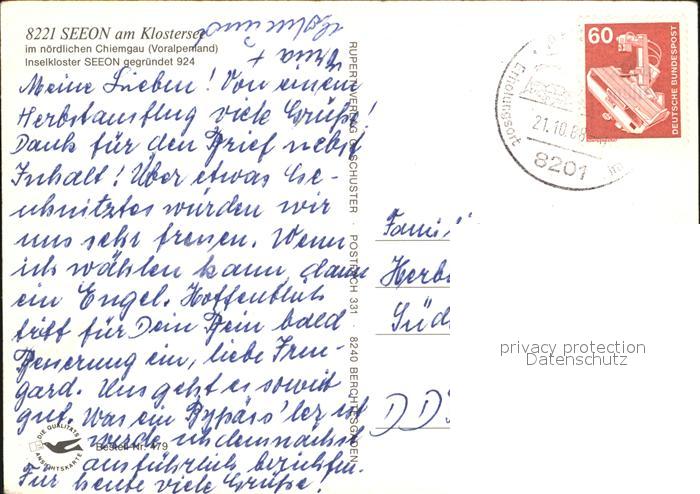 8221 SEEON am Klostersee
im nördlichen Chiemgau (Voralpenland)
Inselkloster SEEON gegründet 924
Meine Lieben! Von einem
Herbstausflug viele Grüße!
Dank für den Brief nebst
Inhalt! Über etwas Ge-
schnitztes würden wir
uns sehr freuen. Wenn
ich wählen kann, dann
ein Engel. Hoffentlich
tritt für Dein Bein bald
Besserung ein, liebe Irm-
gard. Uns geht es soweit
gut. Was ein Bypass'ler ist
werde ich demnächst
ausführlich berichten.
Für heute viele Grüße!
DIE QUALITÄTS
ANSICHTSKARTE
Bestell-Nr. 479
RUPERTI-VERLAG G. SCHUSTER · POSTFACH 331 · 8240 BERCHTESGADEN
60
DEUTSCHE BUNDESPOST
Erholungsort
21.10.88
8201
Fami
Herb
Süd
DD
privacy protection
Datenschutz